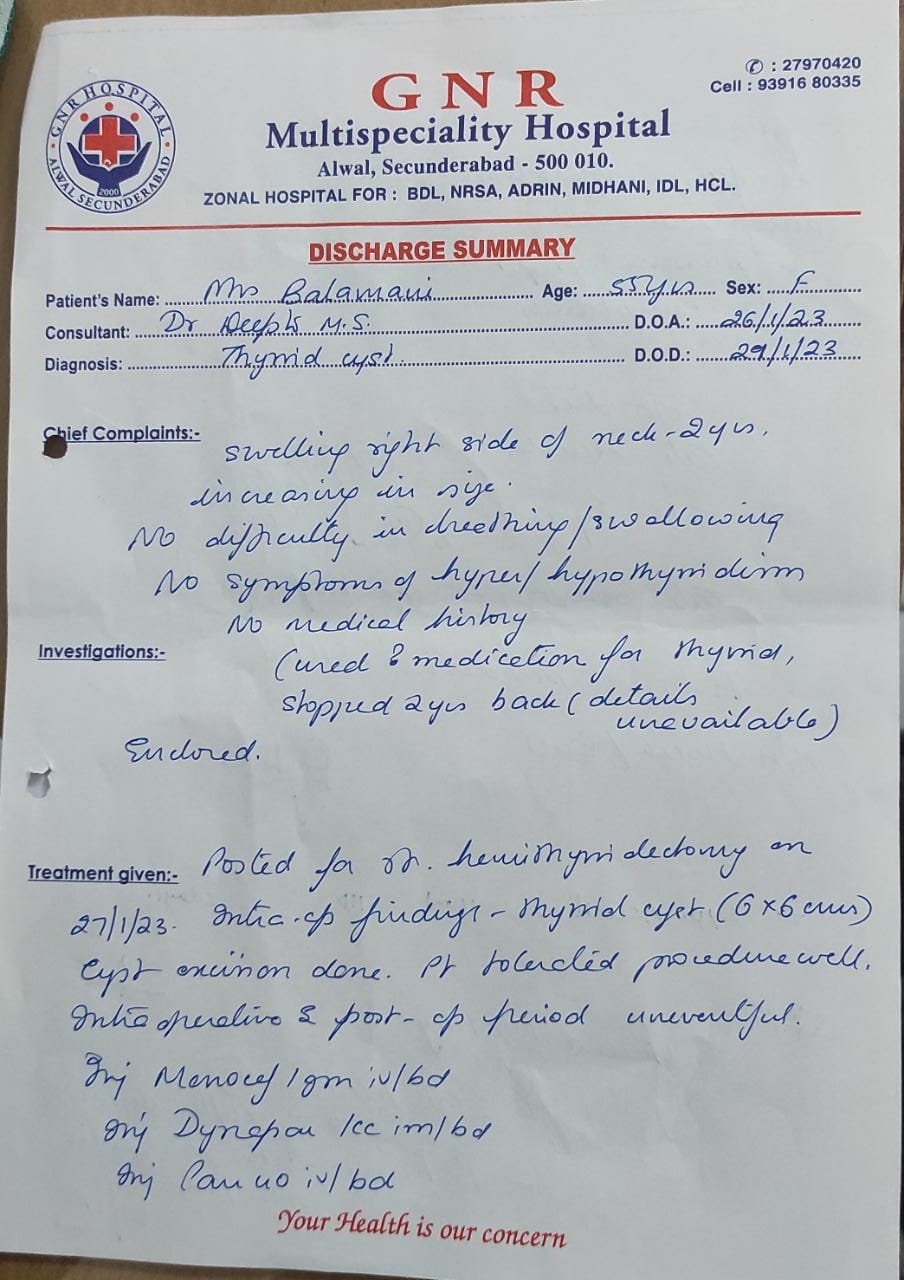 ✆ : 27970420
Cell : 93916 80335
GNR HOSPITAL
ALWAL SECUNDERABAD
2000
GNR
Multispeciality Hospital
Alwal, Secunderabad - 500 010.
ZONAL HOSPITAL FOR : BDL, NRSA, ADRIN, MIDHANI, IDL, HCL.
DISCHARGE SUMMARY
Patient's Name: Mrs Balamani Age: 55yrs Sex: F
Consultant: Dr Deepti M.S. D.O.A.: 26/1/23
Diagnosis: Thyroid cyst. D.O.D.: 29/1/23
Chief Complaints:- swelling right side of neck - 2yrs,
increasing in size.
No difficulty in breathing/swallowing
No symptoms of hyper/hypothyroidism
No medical history
Investigations:- (used medication for thyroid,
stopped 2yrs back (details
unavailable)
Enclosed.
Treatment given:- Posted for rt. hemithyroidectomy on
27/1/23. Intra-op findings - thyroid cyst (6x6 cms)
Cyst excision done. Pt tolerated procedure well.
Intraoperative & post-op period uneventful.
Inj Monocef 1gm iv/bd
Inj Dynapar 1cc im/bd
Inj Pan 40 iv/bd
Your Health is our concern